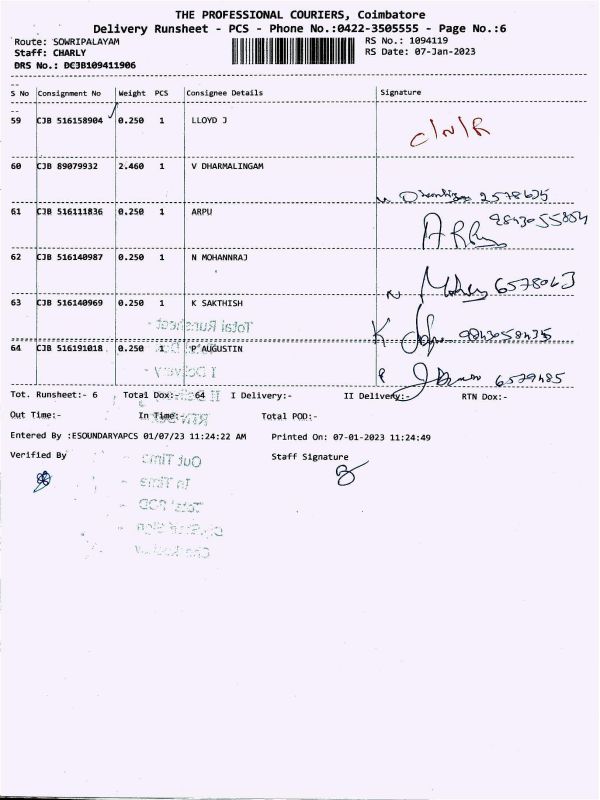 THE PROFESSIONAL COURIERS, Coimbatore
Delivery Runsheet - PCS - Phone No.:0422-3505555 - Page No.:6
Route: SOWRIPALAYAM RS No.: 1094119
Staff: CHARLY RS Date: 07-Jan-2023
DRS No.: DCJB109411906
S No Consignment No Weight PCS Consignee Details Signature
59 CJB 516158904 0.250 1 LLOYD J C/N/R
60 CJB 89079932 2.460 1 V DHARMALINGAM
61 CJB 516111836 0.250 1 ARPU
62 CJB 516140987 0.250 1 N MOHANNRAJ
63 CJB 516140969 0.250 1 K SAKTHISH
Total Runsheet -
64 CJB 516191018 0.250 1 P AUGUSTIN
I Delivery -
Tot. Runsheet:- 6 Total Dox:- 64 I Delivery:- II Delivery:- RTN Dox:-
Out Time:- In Time:- Total POD:-
Entered By :ESOUNDARYAPCS 01/07/23 11:24:22 AM Printed On: 07-01-2023 11:24:49
Verified By Staff Signature
Out Time -
In Time -
Total POD -